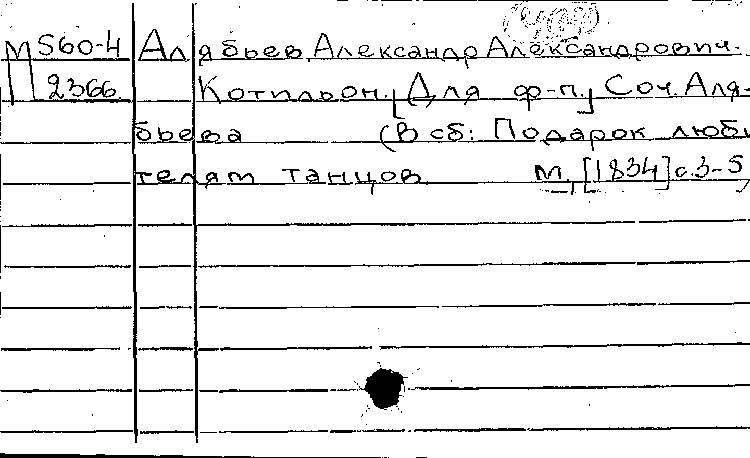 М 560-4 Алябьев, Александр Александрович.
2366 Котильон. [Для ф-п.] Соч. Аля-
бьева (В сб: Подарок люби
телям танцов М, [1834] с.3-5